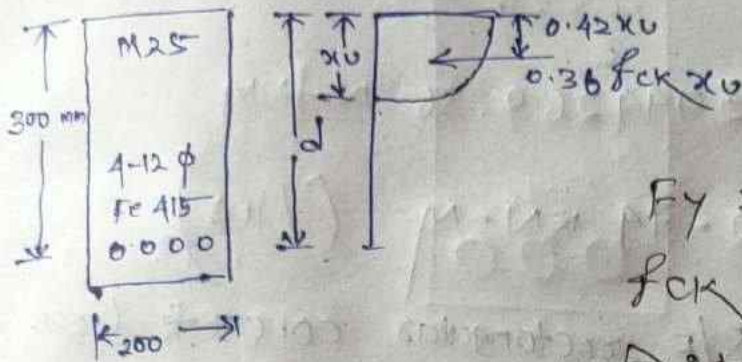 M25
300 mm
4-12 φ
Fe 415
200
xu
d
0.42 xu
0.36 fck xu
Fy =
fck